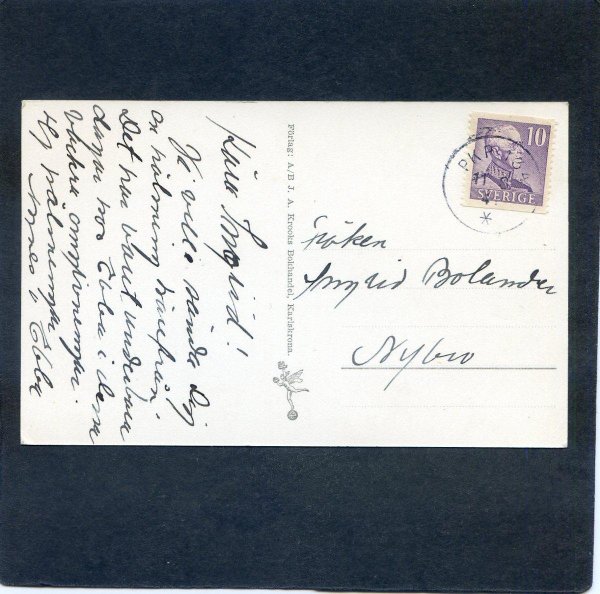 Kära Ingrid!
Vi ville sända Dig
en hälsning härifrån.
Det har varit underbara
dagar hos Ebba i denna
vackra omgivning.
Hj hälsningar
Ebba
Förlag: A/B J. A. Krooks Bokhandel, Karlskrona.
10
SVERIGE
PKP
Fröken
Ingrid Bolander
Nybro